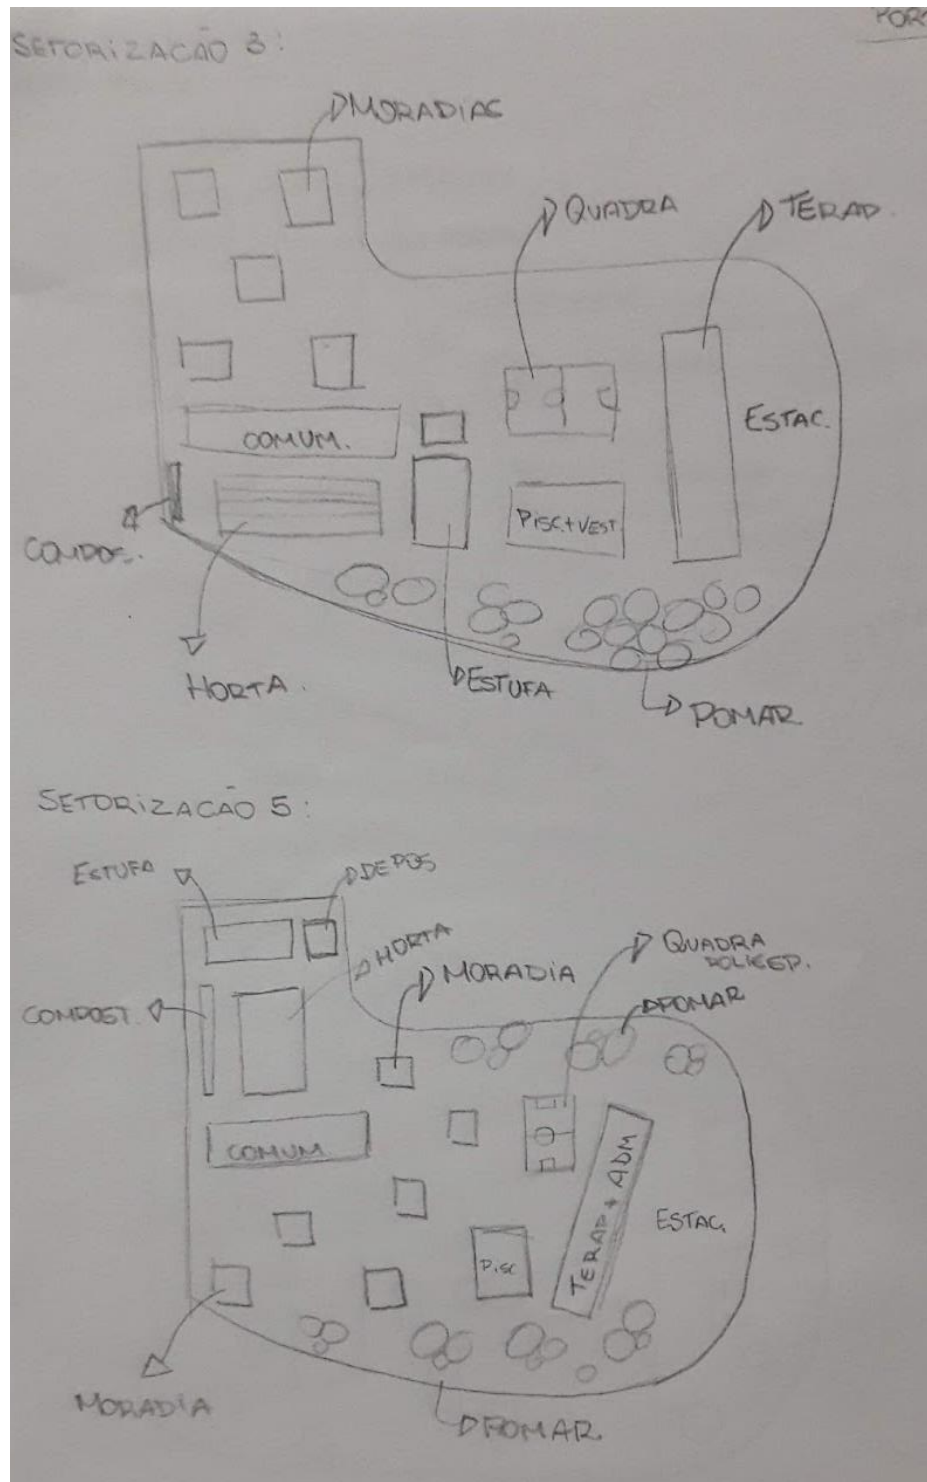 SETORIZAÇÃO 3:
MORADIAS
QUADRA
TERAP.
ESTAC.
COMUM.
PISC.+VEST
COMPOS.
HORTA.
ESTUFA
POMAR
SETORIZAÇÃO 5:
ESTUFA
DEPOS
HORTA
MORADIA
QUADRA
POLIESP.
POMAR
COMPOST.
COMUM
TERAP + ADM
ESTAC.
PISC
MORADIA
POMAR.